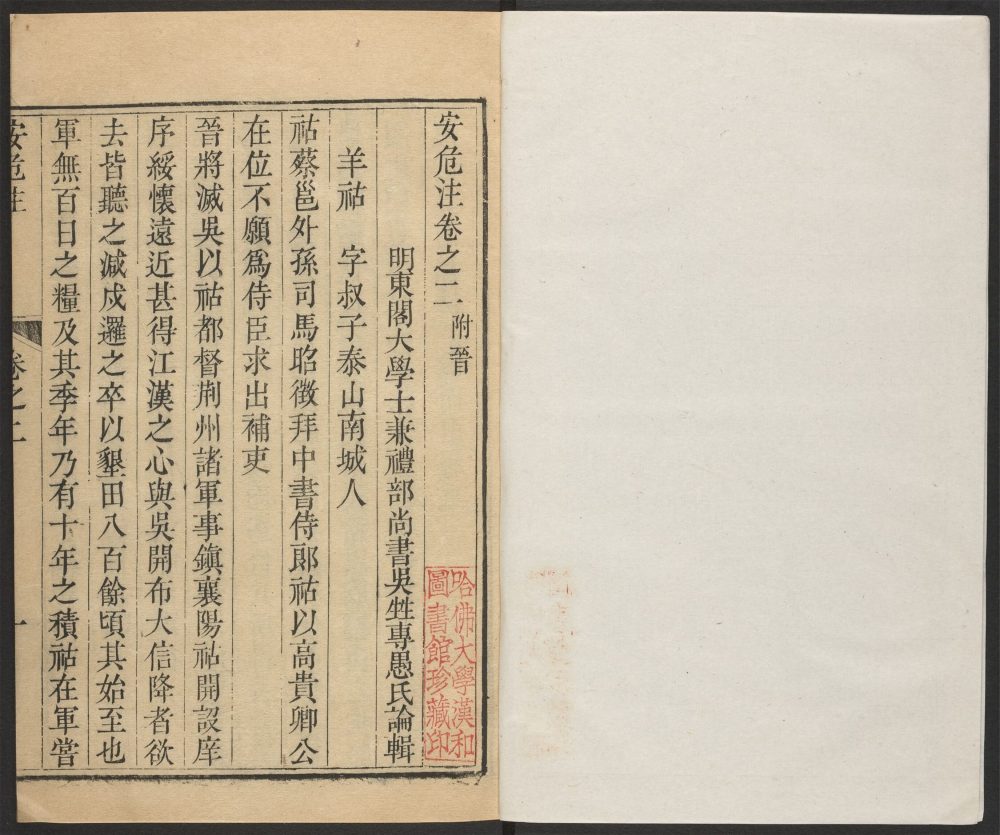 安危注卷之二 附晉
明東閣大學士兼禮部尚書吳甡專愚氏論輯
羊祜 字叔子泰山南城人
祜蔡邕外孫司馬昭徵拜中書侍郎祜以高貴卿公
在位不願爲侍臣求出補吏
晉將滅吳以祜都督荆州諸軍事鎭襄陽祜開設庠
序綏懷遠近甚得江漢之心與吳開布大信降者欲
去皆聽之減戍邏之卒以墾田八百餘頃其始至也
軍無百日之糧及其季年乃有十年之積祜在軍嘗
安危注
卷之二
一
哈佛大學漢和
圖書館珍藏印